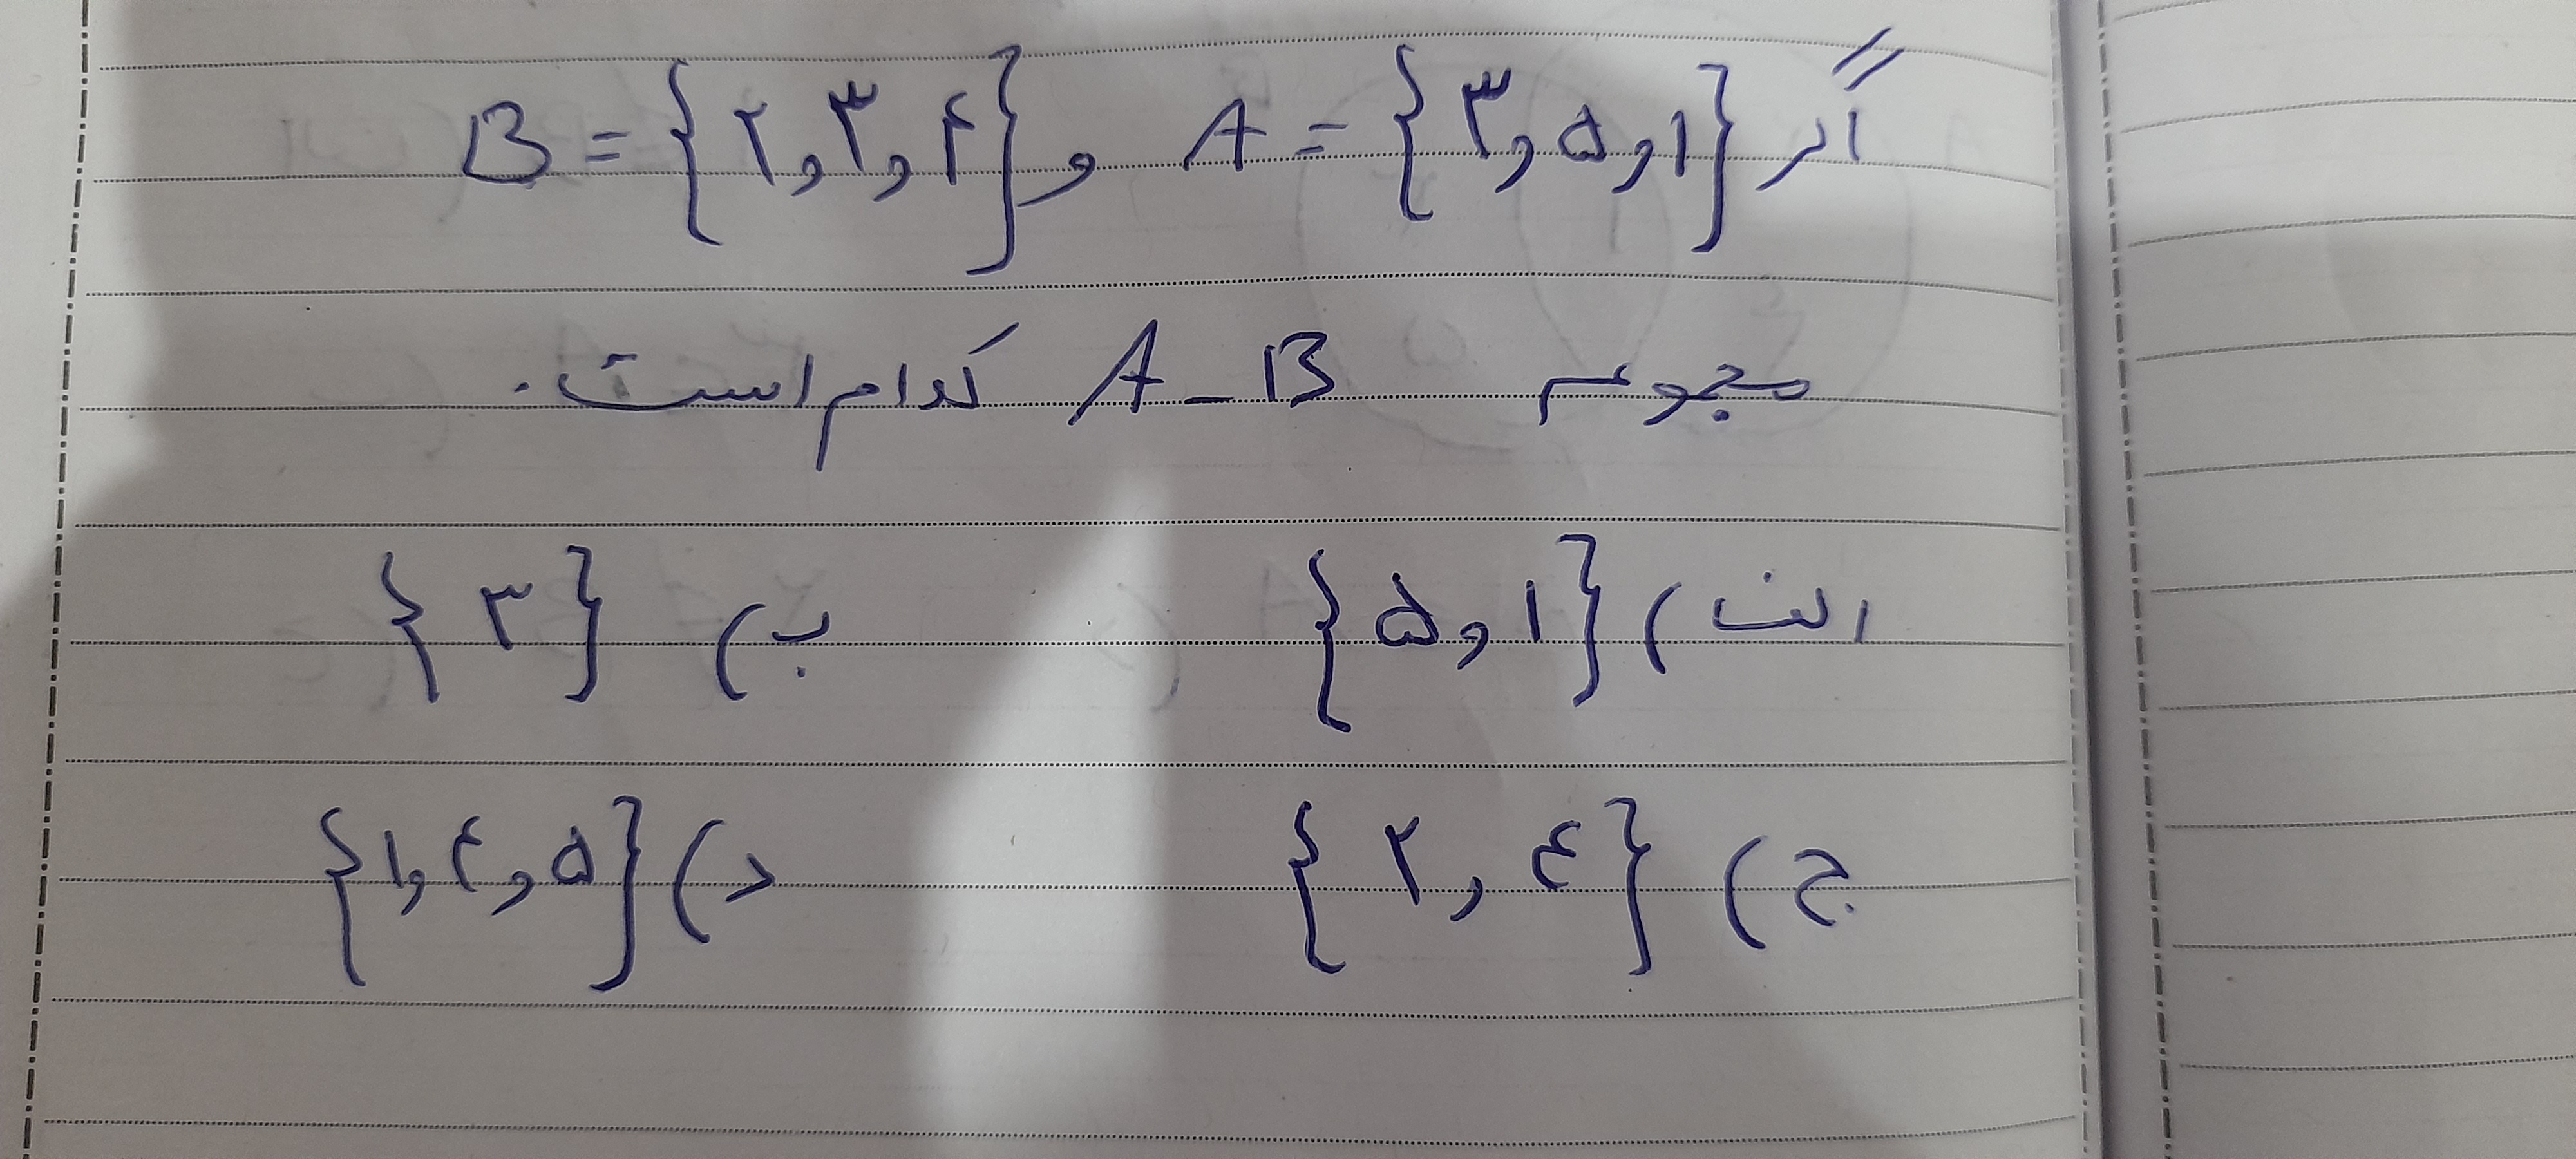 اگر A = {۳, ۵, ۱} و B = {۲, ۳, ۴}
مجموعه A - B کدام است.
الف) {۵, ۱} ب) {۳}
ج) {۲, ۴} د) {۱, ۴, ۵}